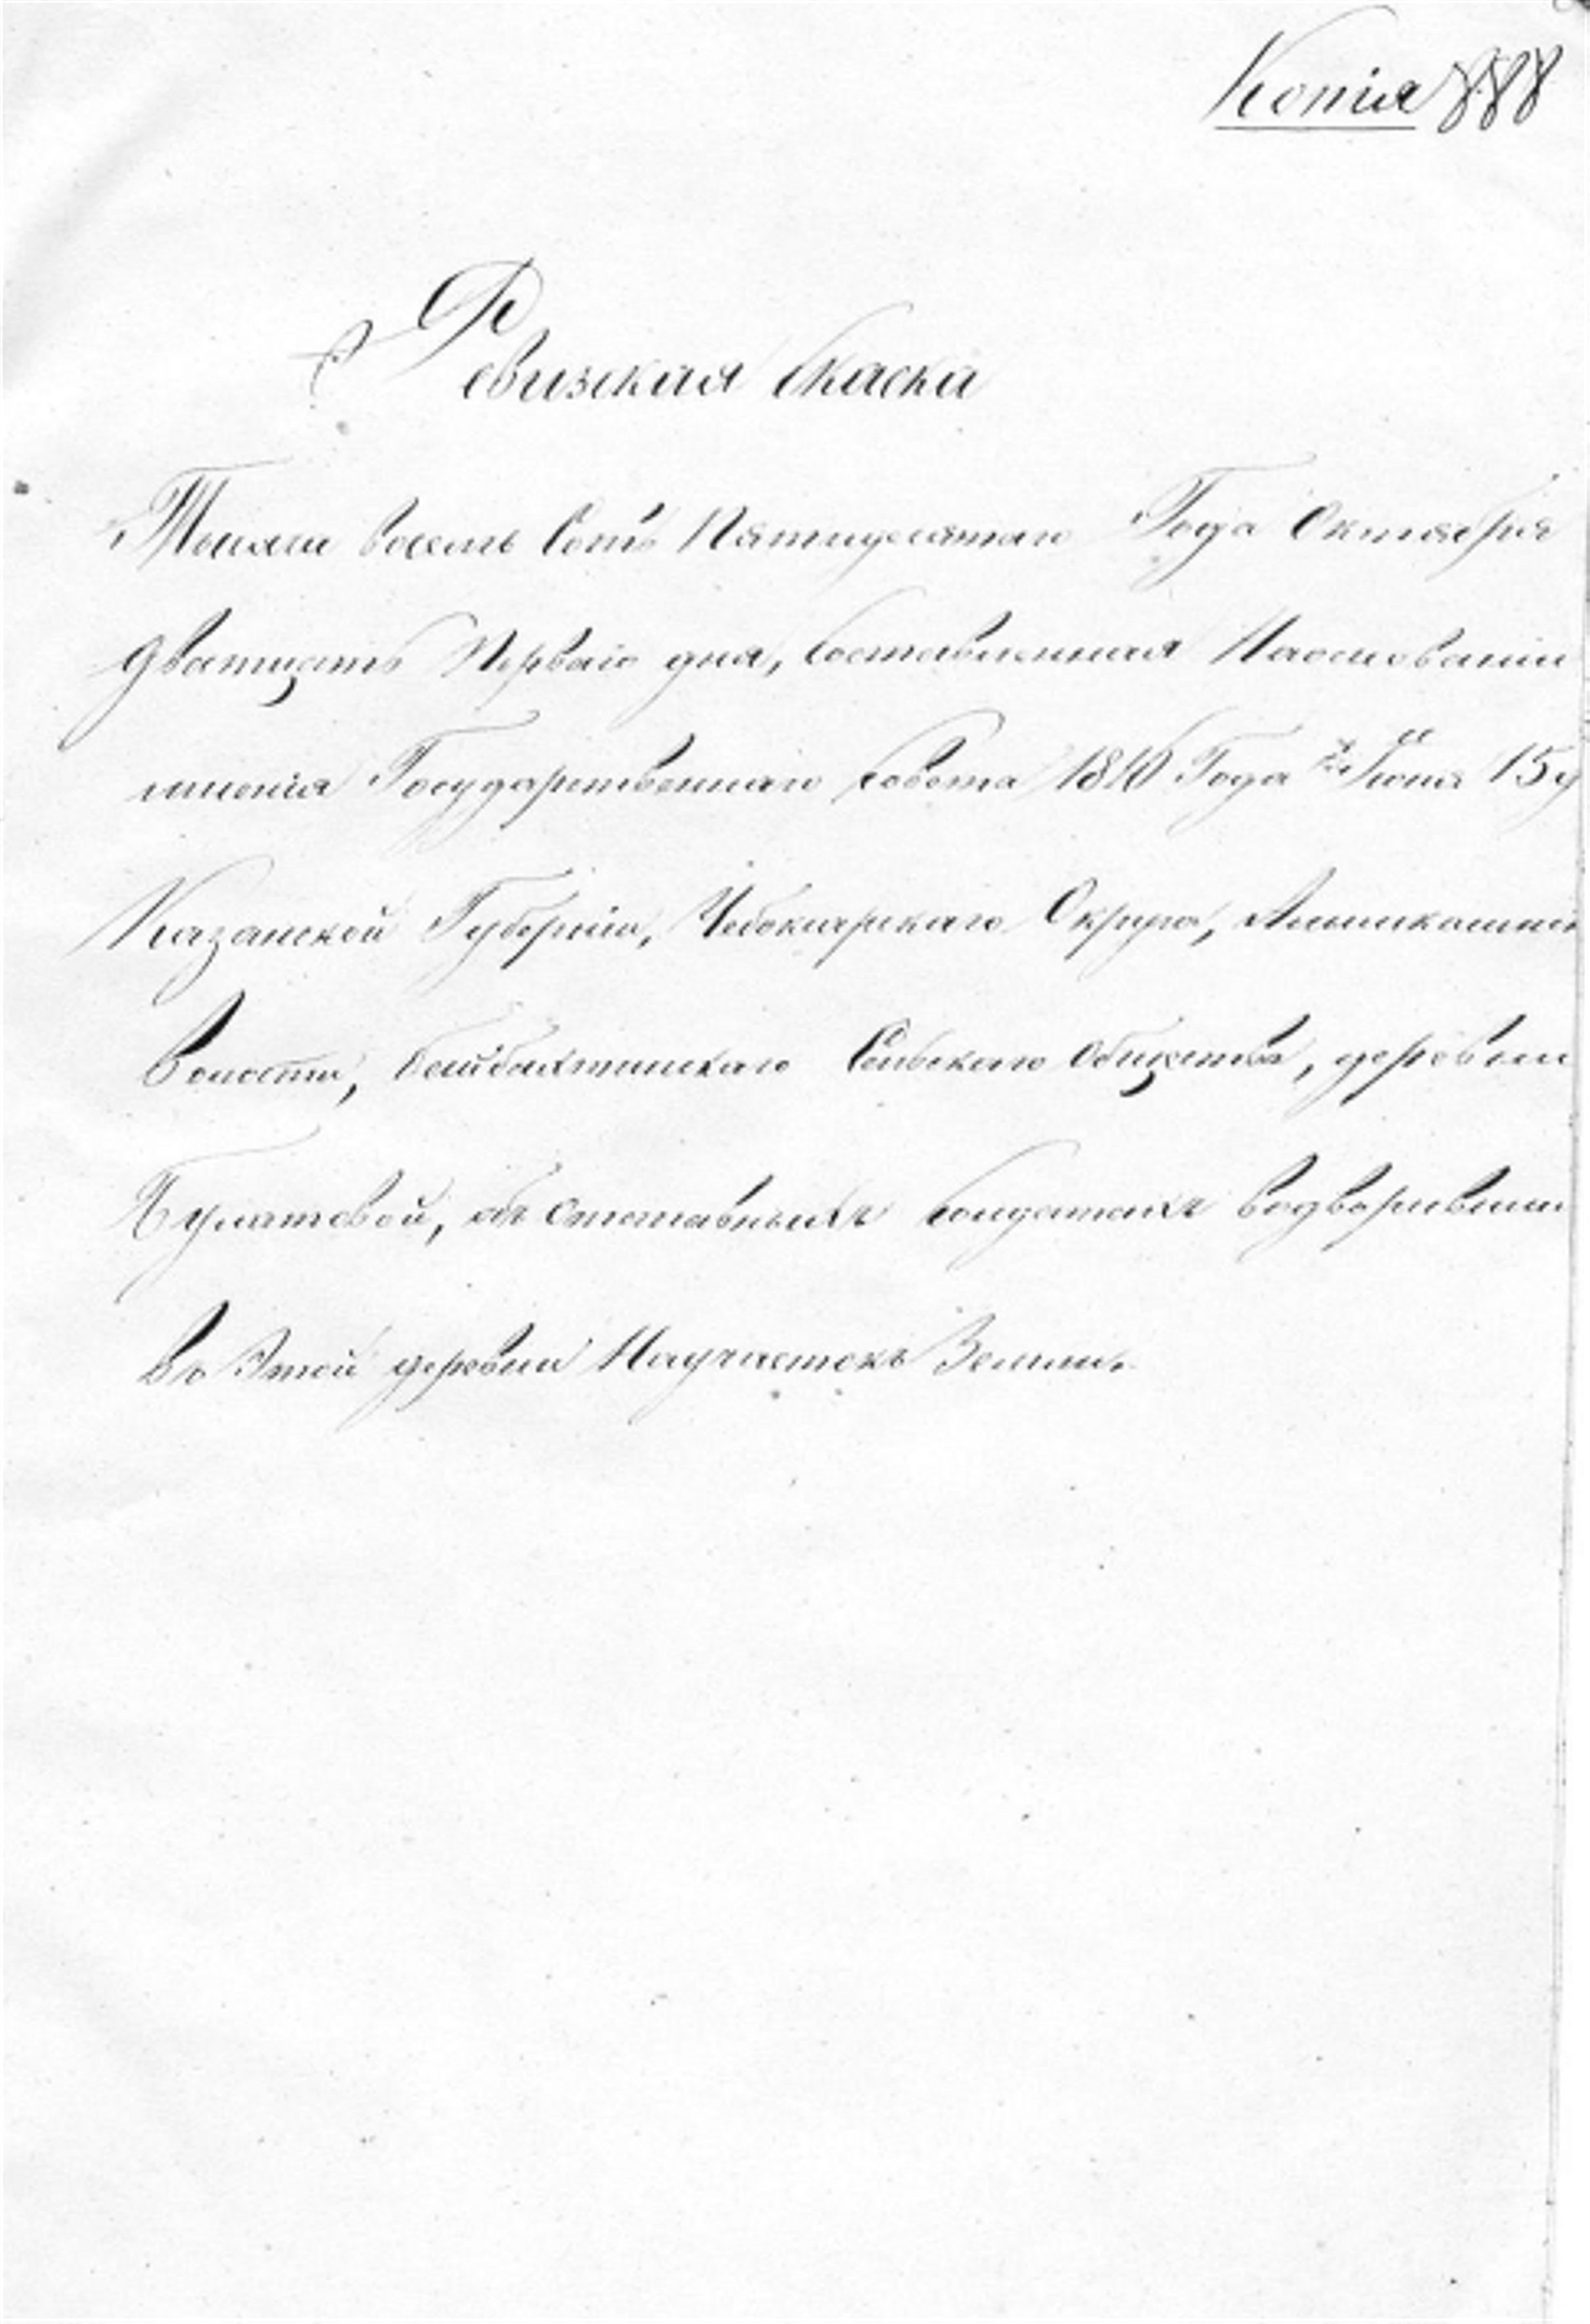 Копія 888
Ревизская скаска
Тысячи восемь Сотъ Пятидесятаго Года Октября
дватцать Перваго дня, составленная Наосновании
мнения Государственнаго совета Года Июня 15 д
Казанской Губерніи, Чебоксарскаго Округа,
волости, Байбахтинскаго Сельскаго общества, деревни
Булатовой, объ отставныхъ солдатахъ водворивших
въ Этой деревни Научастокъ Земли.